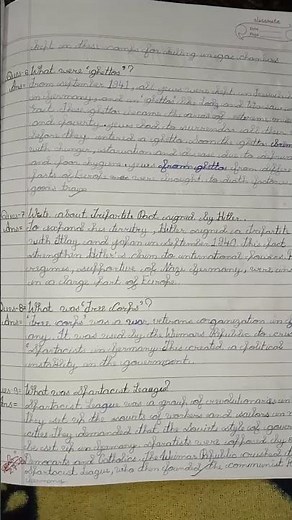 kept in these camps for killing in gas chambers
Ques-6 What were 'ghettos'?
Ans= From September 1941, all Jews were
in Germany and in ghettos like Lodz and Warsaw in
and poverty. Jews had to surrender all their
before they entered a ghetto. Soon the ghetto
with hunger, starvation and disease due to
and poor hygiene. Jews from ghetto from
parts of Europe were brought to death
goods trains
Ques-7 Write about Tripartite Pact signed by Hitler.
Ans= To expand his territory, Hitler signed a tripartite
with Italy and Japan in September 1940. This Pact
strengthen Hitler's claim to international power.
regimes, supportive of Nazi Germany, were
in a large part of Europe.
Ques-8= What was 'Free Corps'?
Ans= 'Free corps' was a war veterans organization in
any. It was used by the Weimar Republic to
Spartacists in Germany. This created a political
instability in the government.
Ques-9= What was Spartacist League?
Ans= Spartacist League was a group of revolutionaries in
They set up the soviets of workers and sailors in
cities. They demanded that the Soviet style of
be set up in Germany. Sparatists were opposed by
Democrats and Catholics. The Weimar Republic crushed
Spartacist League, who then founded the communist
Germany